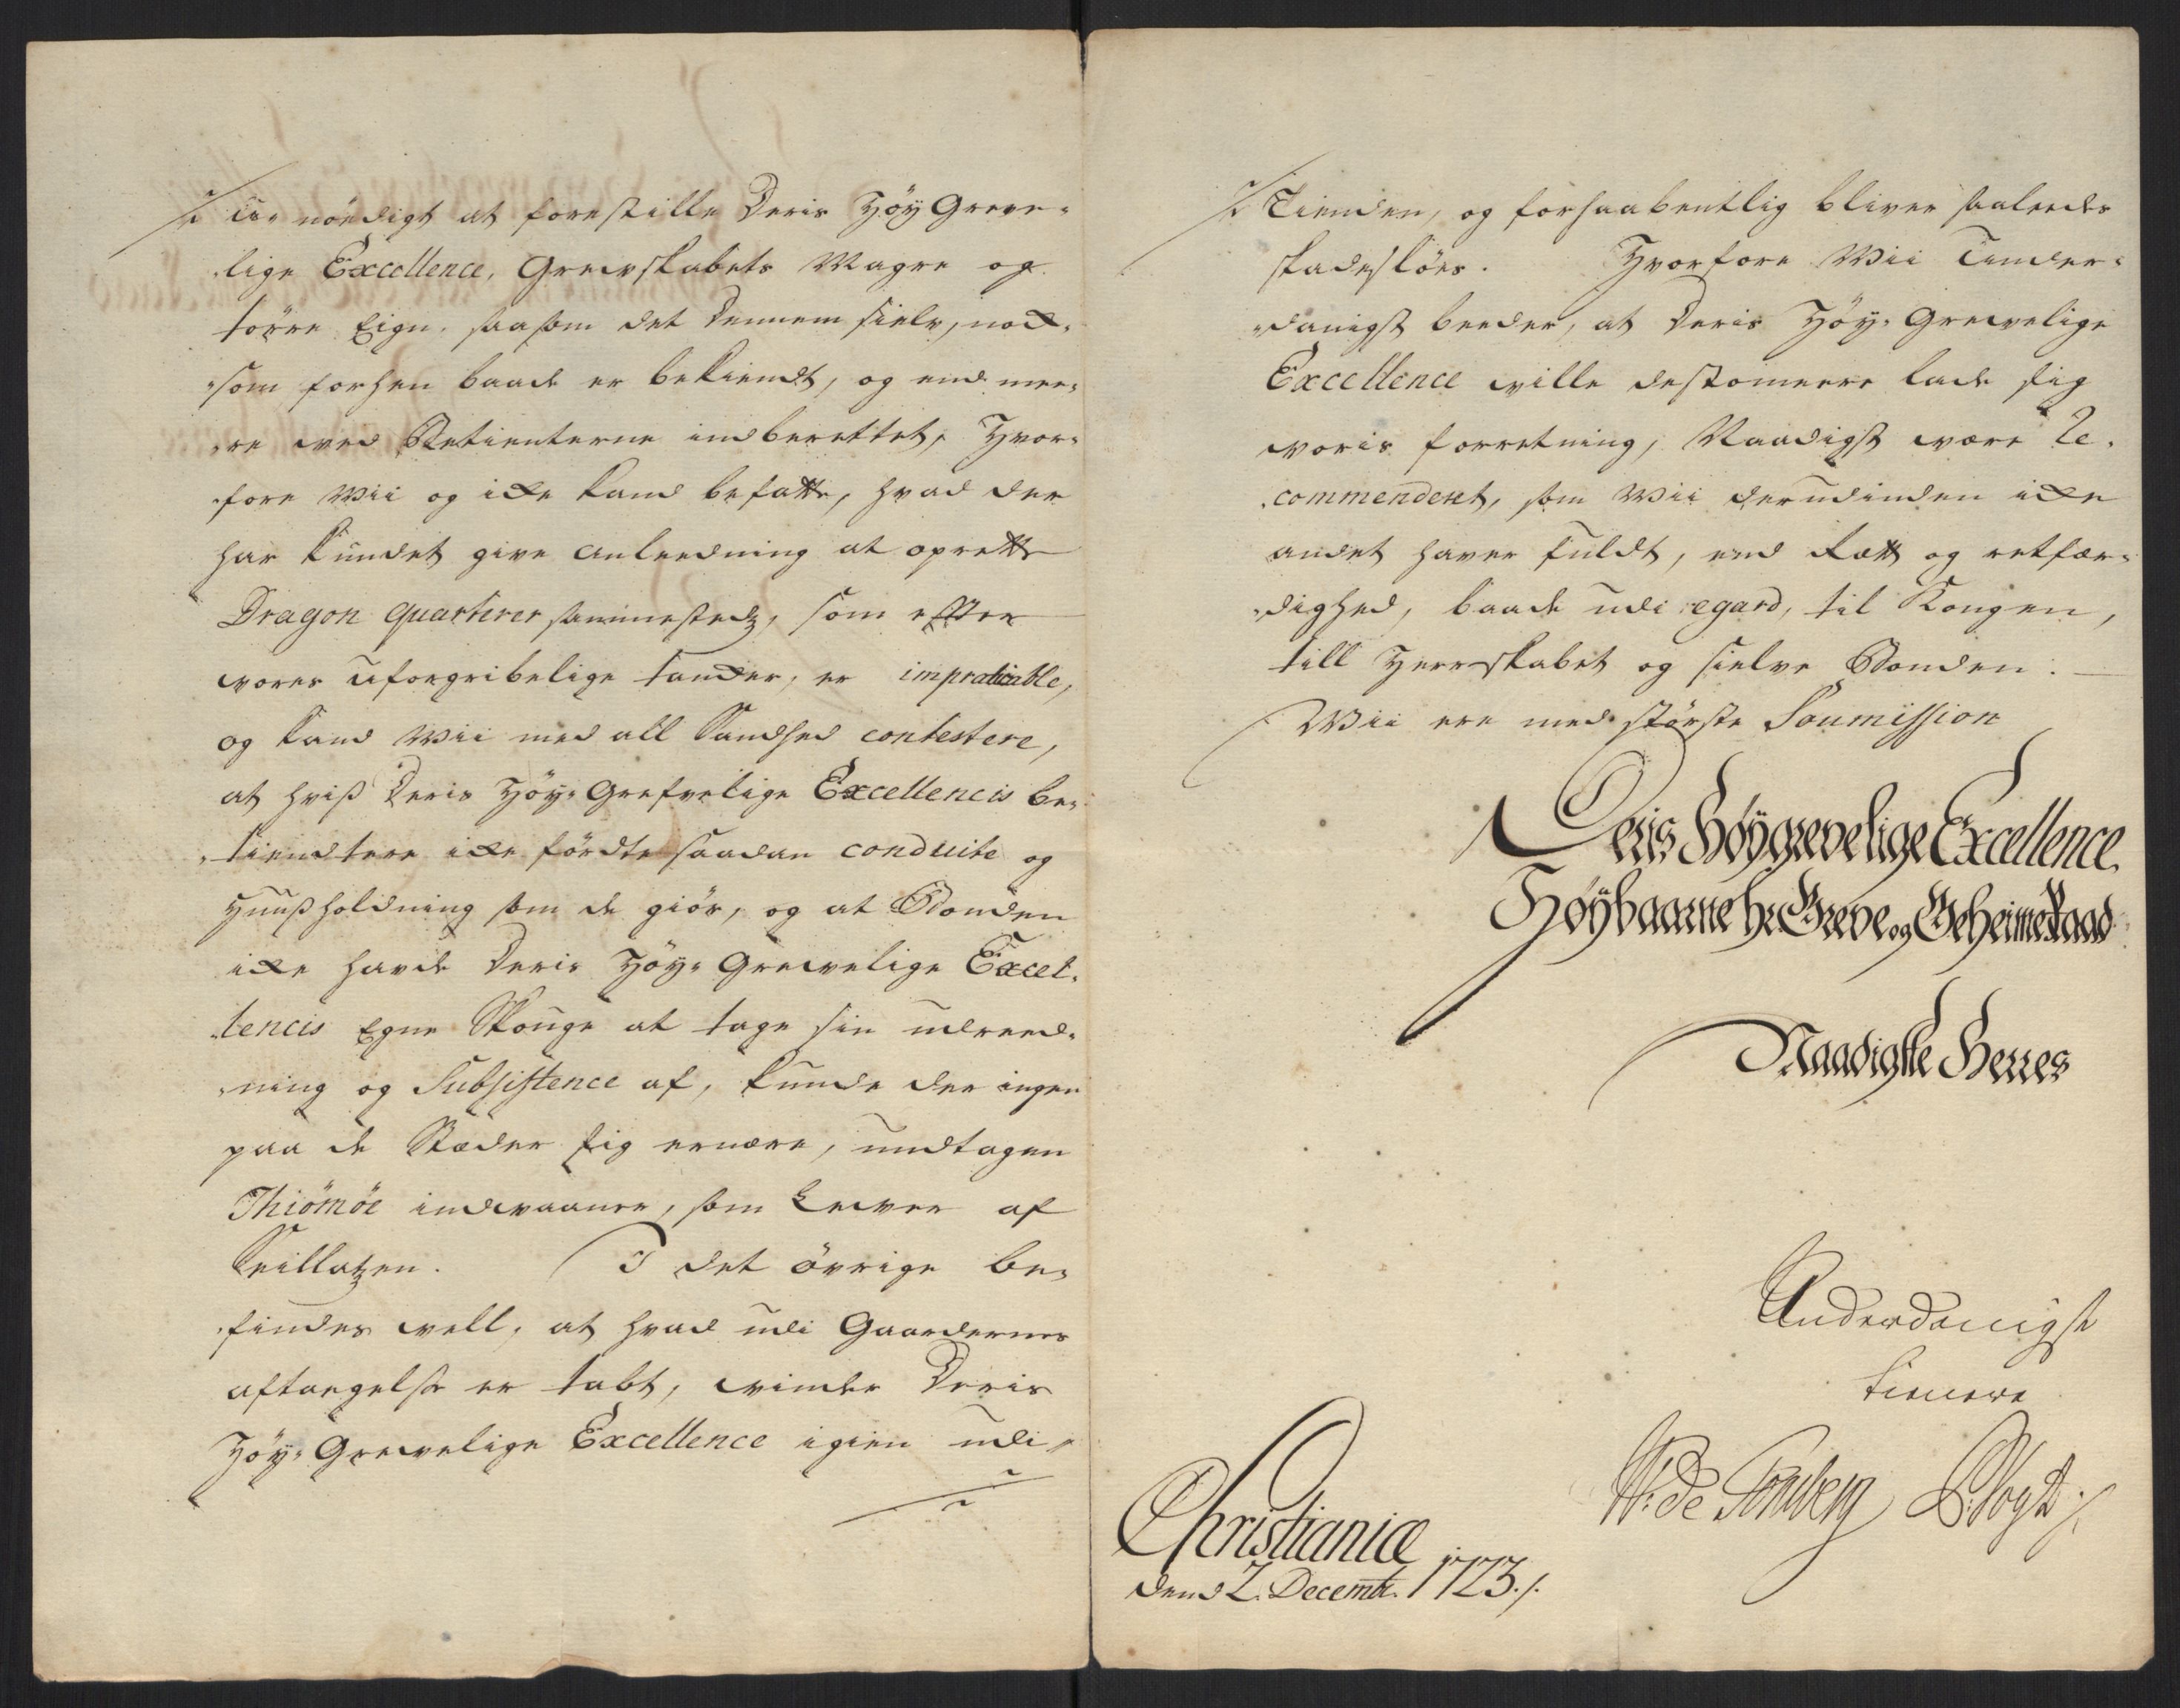 u-nöedigt at forestille Deris Höy Greve-
lige Excellence, Grewskabets Magre og
törre Eign. saasom det Dennem sielv, nok-
som forhen baade er bekiendt, og end mee-
re wed Betienterne indberettet, Hvor-
fore Wii og icke kand befatte, hvad der
har kundet give anleedning at oprette
Dragon quarterer sammestedz, som effter
vores uforgribelige tancker, er impraticable,
og kand Wii med all Sandhed contestere,
at hviß Deris Höy-Grefvelige Excellencis be-
tiendtere icke fördte saadan conduite og
Huußholdning som de giör, og at Bonden
icke havde Deris Höy-Grewelige Excel-
lencis Egne Skouge at tage sin udreed-
ning og Subsistence af, kunde der ingen
paa de Stæder sig ernære, undtagen
Thiömöe indwaanere, som Lewer af
Seillatzen. I det övrige be-
findes well, at hvad udi Gaardernes
aftægelse er tabt, winder Deris
Höy-Grewelige Excellence igien udi
Tienden, og forhaabentlig bliver saaleedes
skadeslöes. Hvorfore Wii Under-
danigst beeder, at Deris Höy-Grewelige
Excellence wille destomeere lade sig
woris forretning, Naadigst wære Re-
commenderet, som Wii derudinden icke
andet haver fuldt, end Rætt og retfær-
dighed, baade udi regard, til Kongen,
till Herrskabet og sielve Bonden.
Wii ere med störste Soumission
Deris Höygrevelige Excellence
Høybaarne hr. Greve og Geheimeraad
Naadigste Herres
Underdanigste
tienere
W: de Tonsberg Vogt
Christianiæ
dend 2. Decembr. 1723.